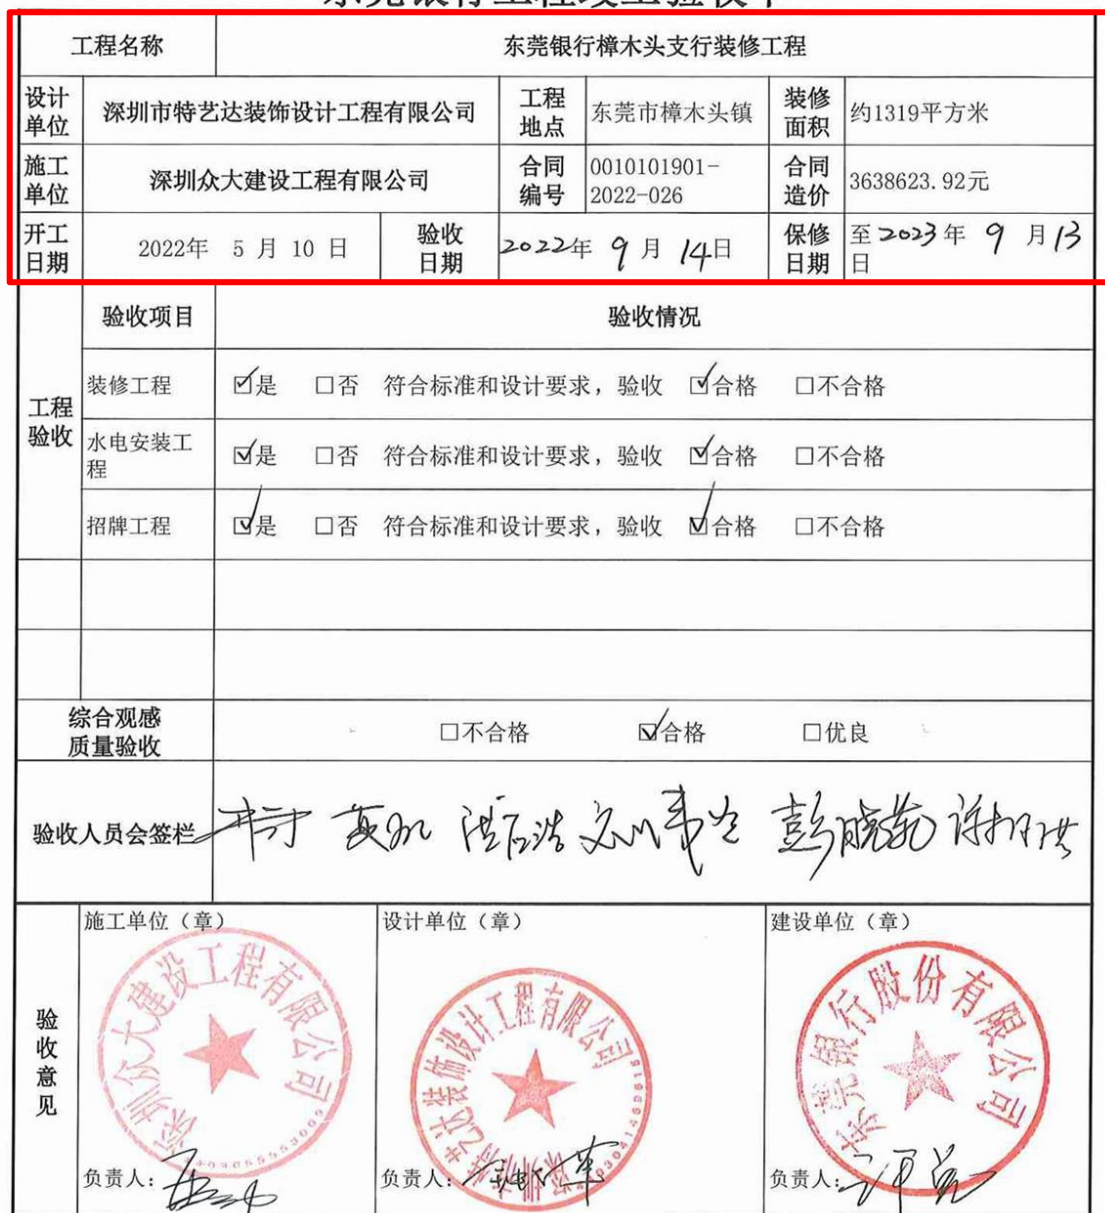 东莞银行工程竣工验收单
工程名称 东莞银行樟木头支行装修工程
设计单位 深圳市特艺达装饰设计工程有限公司 工程地点 东莞市樟木头镇 装修面积 约1319平方米
施工单位 深圳众大建设工程有限公司 合同编号 0010101901-2022-026 合同造价 3638623.92元
开工日期 2022年 5 月 10 日 验收日期 2022年 9 月 14日 保修日期 至2023年 9 月13日
工程验收 验收项目 验收情况
装修工程 ☑是 □否 符合标准和设计要求，验收 ☑合格 □不合格
水电安装工程 ☑是 □否 符合标准和设计要求，验收 ☑合格 □不合格
招牌工程 ☑是 □否 符合标准和设计要求，验收 ☑合格 □不合格
综合观感质量验收 □不合格 ☑合格 □优良
验收人员会签栏
验收意见
施工单位（章） 设计单位（章） 建设单位（章）
深圳众大建设工程有限公司
深圳市特艺达装饰设计工程有限公司
东莞银行股份有限公司
负责人： 负责人： 负责人：